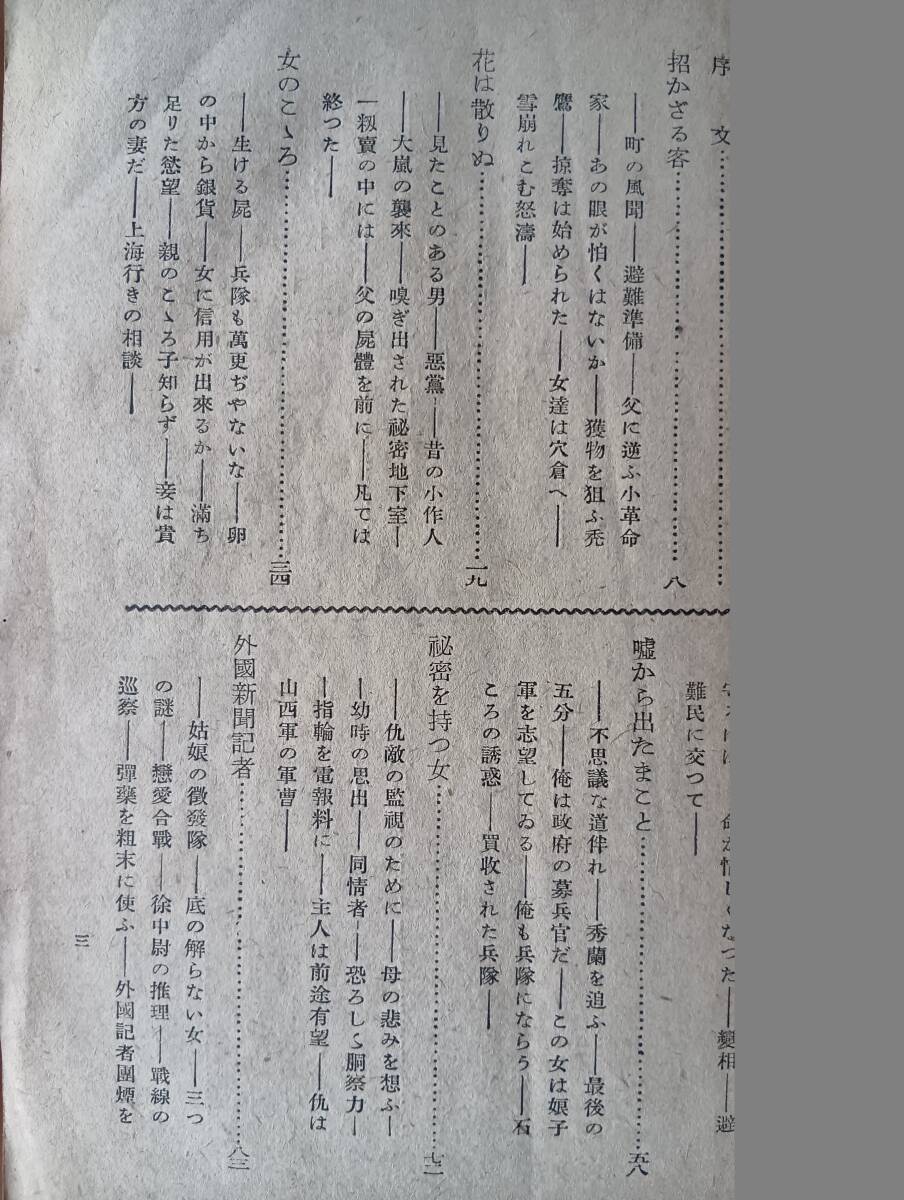 序文
招かざる客……八
――町の風聞――避難準備――父に逆ふ小革命
家――あの眼が怕くはないか――獲物を狙ふ禿
鷹――掠奪は始められた――女達は穴倉へ――
雪崩れこむ怒濤――
花は散りぬ……一九
――見たことのある男――惡黨――昔の小作人
――大嵐の襲來――嗅ぎ出された祕密地下室―
―籾賣の中には――父の屍體を前に――凡ては
終つた――
女のこゝろ……三四
――生ける屍――兵隊も萬更ぢやないな――卵
の中から銀貨――女に信用が出來るか――滿ち
足りた慾望――親のこゝろ子知らず――妾は貴
方の妻だ――上海行きの相談――
命が惜しくなつた――變相――避
難民に交つて――
嘘から出たまこと……五八
――不思議な道伴れ――秀蘭を追ふ――最後の
五分――俺は政府の募兵官だ――この女は娘子
軍を志望してゐる――俺も兵隊にならう――石
ころの誘惑――買收された兵隊――
祕密を持つ女……七二
――仇敵の監視のために――母の悲みを想ふ―
―幼時の思出――同情者――恐ろしゝ胴察力―
―指輪を電報料に――主人は前途有望――仇は
山西軍の軍曹――
外國新聞記者……八三
――姑娘の徵發隊――底の解らない女――三つ
の謎――戀愛合戰――徐中尉の推理――戰線の
巡察――彈藥を粗末に使ふ――外國記者團煙を
三